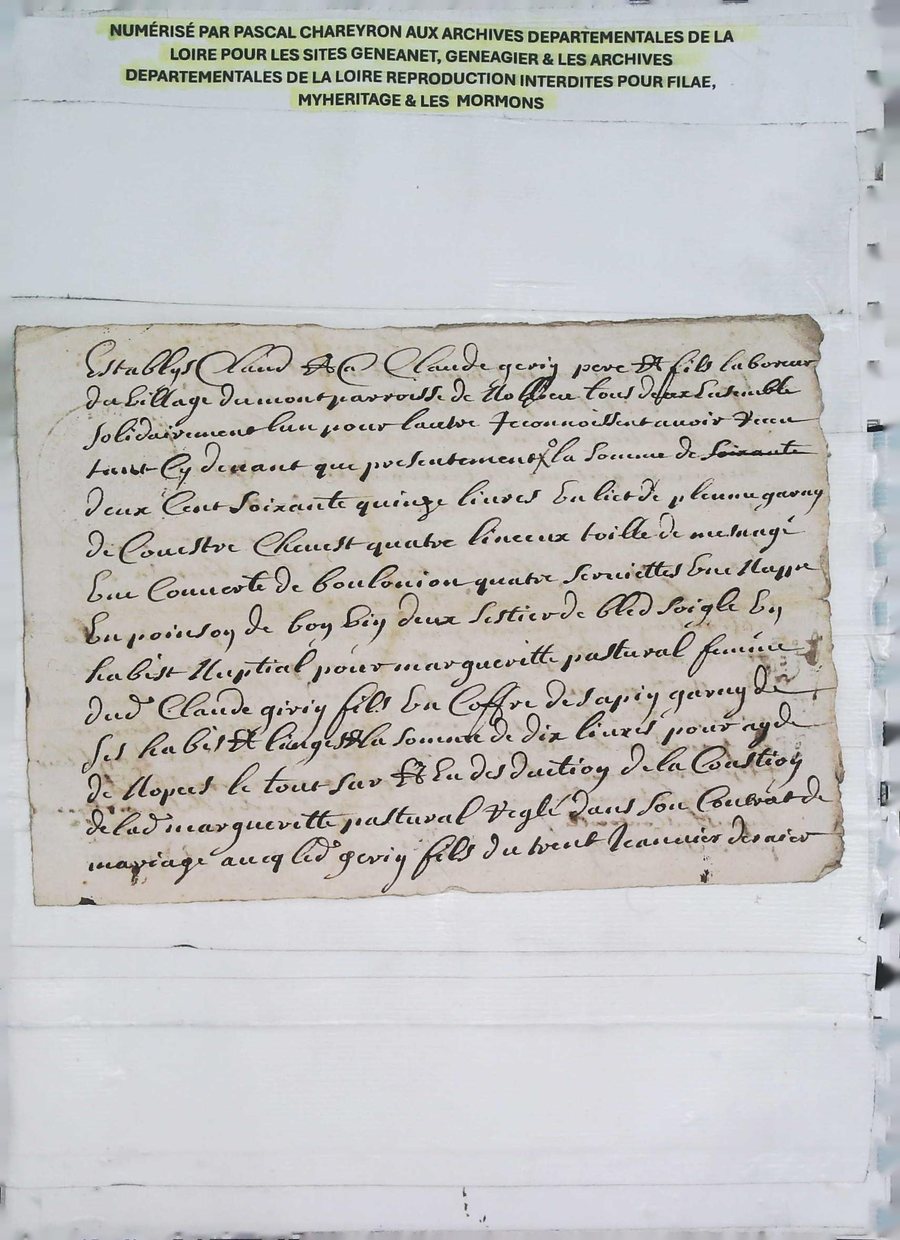 NUMÉRISÉ PAR PASCAL CHAREYRON AUX ARCHIVES DEPARTEMENTALES DE LA
LOIRE POUR LES SITES GENEANET, GENEAGIER & LES ARCHIVES
DEPARTEMENTALES DE LA LOIRE REPRODUCTION INTERDITES POUR FILAE,
MYHERITAGE & LES MORMONS
Establys Claud et Claude geriy pere et fils laboreur
du Village du mont parroisse de tous deux Ensemble
solidairement lun pour lautre Reconnoissent avoir Receu
tant Cy devant que presentement la somme de soixante
deux Cent soixante quinze livres Un lict de plume garny
de Couestre Chevest quatre linceux toille de mesnage
Une Couverte de quatre serviettes Une Nappe
Un poinson de bon Vin deux sestier de bled soigle Un
habist Nuptial pour margueritte pastural femme
dud Claude giriy fils Un Coffre de sapin garny de
ses habis et linges et la somme de dix livres pour ayde
de Nopces le tout sur et En desduction de la Constion
de lad margueritte pastural Reglé dans son Contrat de
mariage avecq led geriy fils du trent Jeanvier dernier